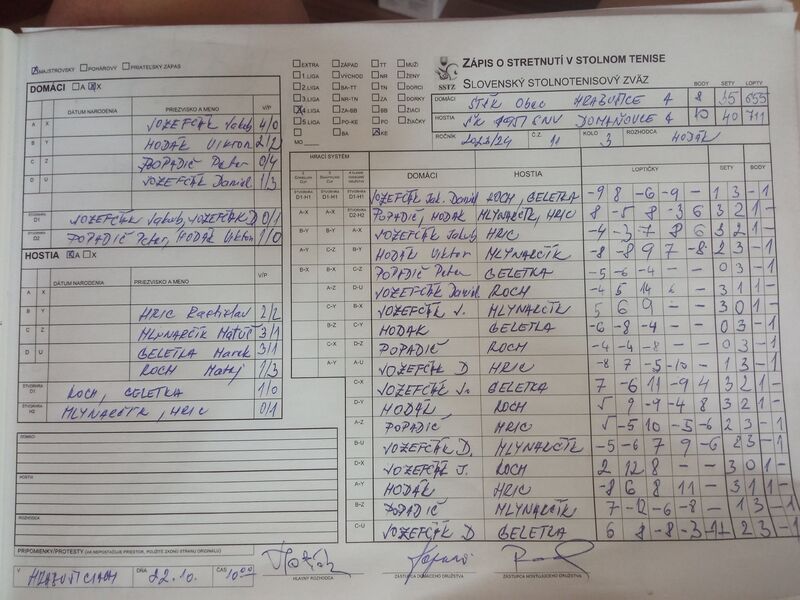 MAJSTROVSKÝ POHÁROVÝ PRIATEĽSKÝ ZÁPAS
DOMÁCI A X
DÁTUM NARODENIA PRIEZVISKO A MENO V/P
A X JOZEFČÁK Jakub 4/0
B Y HODÁK Viktor 2/2
C Z POPADIČ Peter 0/4
D U JOZEFČÁK Daniel 1/3
ŠTVORHRA D1 JOZEFČÁK Jakub, JOZEFČÁK D 0/1
ŠTVORHRA D2 POPADIČ Peter, HODÁK Viktor 1/0
HOSTIA A X
DÁTUM NARODENIA PRIEZVISKO A MENO V/P
A X
B Y HRIC Rastislav 2/2
C Z MLYNARČÍK Matúš 3/1
D U GELETKA Marek 3/1
ROCH Matej 1/3
ŠTVORHRA ROCH, GELETKA 1/0
ŠTVORHRA H2 MLYNARČÍK, HRIC 0/1
DOMÁCI
HOSTIA
ROZHODCA
PRIPOMIENKY/PROTESTY (AK NEPOSTAČUJE PRIESTOR, POUŽITE ZADNÚ STRANU ORIGINÁLU)
EXTRA ZÁPAD TT MUŽI
1.LIGA VÝCHOD NR ŽENY
2.LIGA BA-TT TN DORCI
3.LIGA NR-TN ZA DORKY
4.LIGA ZA-BB BB ŽIACI
5.LIGA PO-KE PO ŽIAČKY
BA KE
MO
SSTZ
ZÁPIS O STRETNUTÍ V STOLNOM TENISE
SLOVENSKÝ STOLNOTENISOVÝ ZVÄZ
BODY SETY LOPTY
DOMÁCI STK Obec HRABUŠICE A 8 35 655
HOSTIA ŠK 1951 CNV DOMAŇOVCE A 10 40 711
ROČNÍK 2023/24 Č.Z. 11 KOLO 3 ROZHODCA HODÁK
HRACÍ SYSTÉM DOMÁCI HOSTIA LOPTIČKY SETY BODY
D1-H1 D1-H1 JOZEFČÁK Jak. Daniel ROCH, GELETKA -9 8 -6 -9 - 1 3 - 1
A-X D2-H2 POPADIČ, HODÁK MLYNARČÍK, HRIC 8 -5 8 -3 6 3 2 1 -
B-Y A-X JOZEFČÁK Jakub HRIC -4 -3 7 8 6 3 2 1 -
A-Y B-Y HODÁK Viktor MLYNARČÍK -8 -8 9 7 -8 2 3 - 1
B-X C-Z POPADIČ Peter GELETKA -5 -6 -4 - - 0 3 - 1
A-Z D-U JOZEFČÁK Daniel ROCH -4 5 14 6 - 3 1 1 -
C-Y B-X JOZEFČÁK J. MLYNARČÍK 5 6 9 - - 3 0 1 -
B-Z C-Y HODÁK GELETKA -6 -8 -4 - - 0 3 - 1
C-X D-Z POPADIČ ROCH -4 -4 -8 - - 0 3 - 1
A-Y A-U JOZEFČÁK D HRIC -8 7 -5 -10 - 1 3 - 1
C-X JOZEFČÁK J. GELETKA 7 -6 11 -9 4 3 2 1 -
D-Y HODÁK ROCH 5 9 -9 -4 8 3 2 1 -
A-Z POPADIČ HRIC 5 -5 10 -5 -6 2 3 - 1
B-U JOZEFČÁK D. MLYNARČÍK -5 -6 7 9 -6 2 3 - 1
D-X JOZEFČÁK J. ROCH 2 12 8 - - 3 0 1 -
A-Y HODÁK HRIC -8 6 8 11 - 3 1 1 -
B-Z POPADIČ MLYNARČÍK 7 -12 -6 -8 - 1 3 - 1
C-U JOZEFČÁK D GELETKA 6 8 -8 -3 -12 2 3 - 1
V HRABUŠICIACH DŇA 22.10. ČAS 10:00
HLAVNÝ ROZHODCA ZÁSTUPCA DOMÁCEHO DRUŽSTVA ZÁSTUPCA HOSŤUJÚCEHO DRUŽSTVA